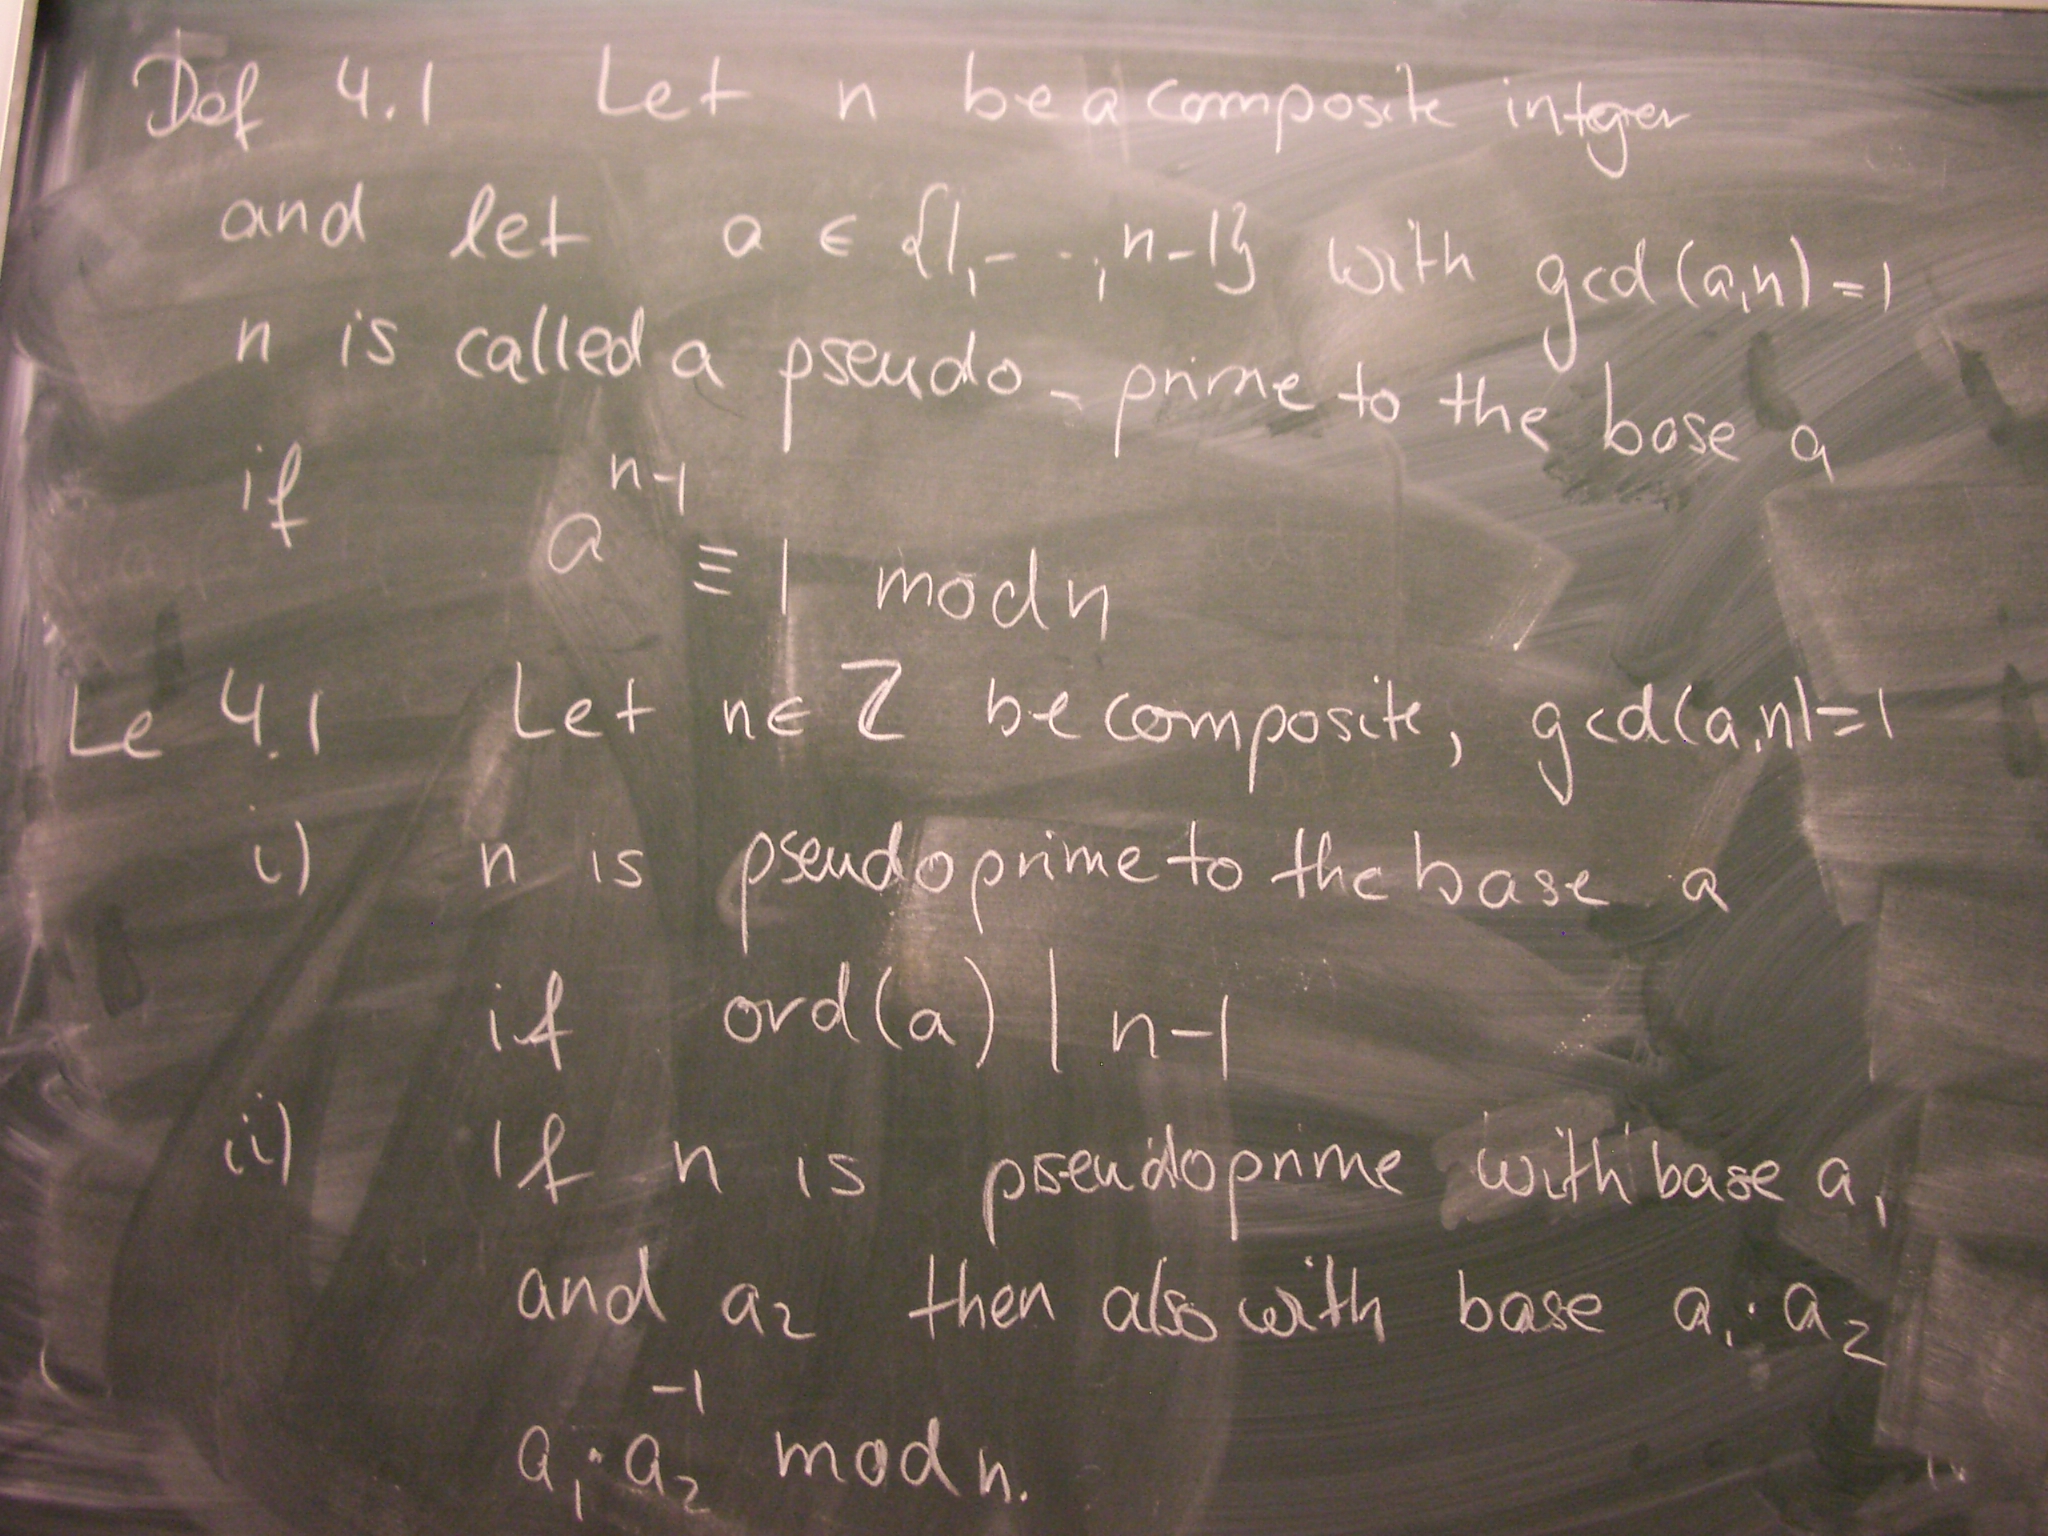 Def 4.1 Let n be a composite integer
and let a ∈ {1,--.,n-1} with gcd(a,n)=1
n is called a pseudo-prime to the base a
if a^{n-1} ≡ 1 mod n
Le 4.1 Let n∈Z be composite, gcd(a,n)=1
i) n is pseudoprime to the base a
if ord(a) | n-1
ii) If n is pseudoprime with base a_1
and a_2 then also with base a_1·a_2
a_1·a_2^{-1} mod n.